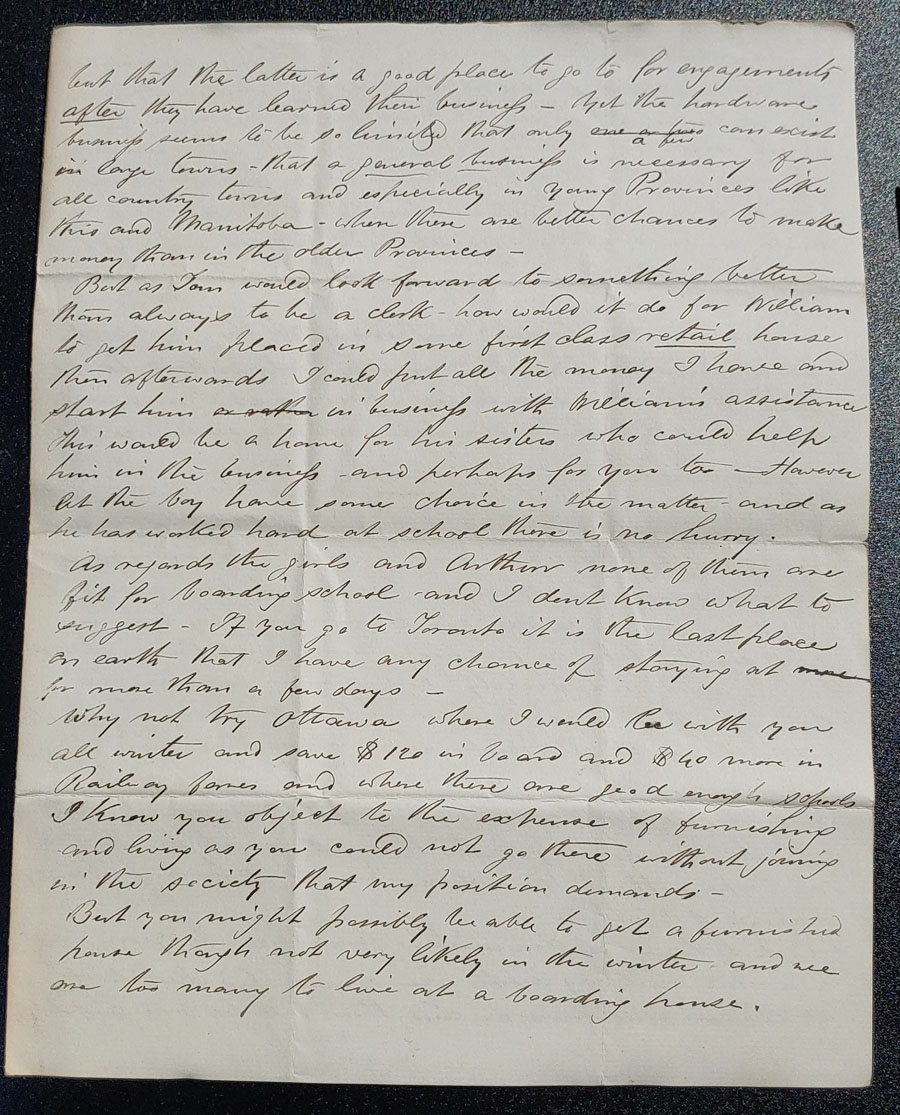 but that the latter is a good place to go to for engagements
after they have learned their business – Yet the hardware
business seems to be so limited that only one or two a few can exist
in large towns – that a general business is necessary for
all country towns and especially in young Provinces like
this and Manitoba – when there are better chances to make
money than in the older Provinces –
But as Tom would look forward to something better
than always to be a clerk – how would it do for William
to get him placed in some first class retail house
then afterwards I could put all the money I have and
start him or rather in business with William's assistance
This would be a home for his sisters who could help
him in the business – and perhaps for you too – However
let the boy have some choice in the matter – and as
he has worked hard at school there is no hurry.
As regards the girls and Arthur none of them are
fit for boarding school – and I dont know what to
suggest – If you go to Toronto it is the last place
on earth that I have any chance of staying at more
for more than a few days –
Why not try Ottawa where I would be with you
all winter and save $120 in board and $40 more in
Railway fares and where there are good enough schools
I know you object to the expense of furnishing
and living as you could not go there without joining
in the society that my position demands –
But you might possibly be able to get a furnished
house though not very likely in the winter – and we
are too many to live at a boarding house.